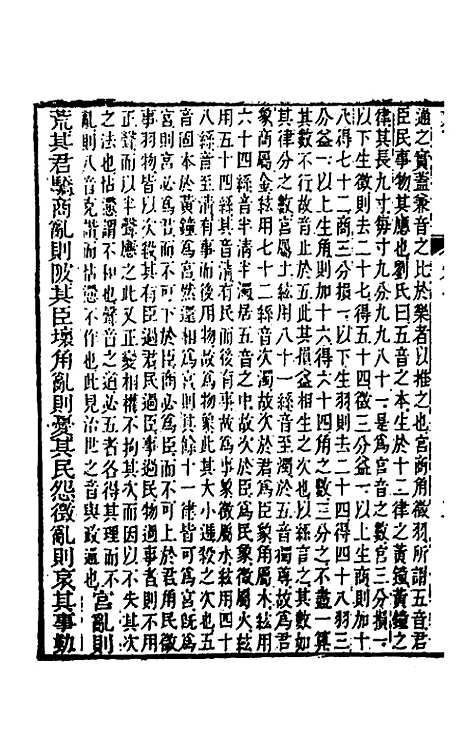 通之實蓋乘音之比於樂者以推之也宮商角徵羽所謂五音君
臣民事物其應也劉氏曰五音之本生於十二律之黃鐘黃鐘之
律其長九寸每寸九分九九八十一是為宮音之數宮三分損一
以下生徵則去二十七得五十四徵三分益一以上生商則加十
八得七十二商三分損一以下生羽則去二十四得四十八羽三
分益一以上生角則加十六得六十四角之數三分之不盡一算
其數不行故音止於五此其損益相生之次也以絲言之則其數如
其律分之數宮屬土絃用八十一絲音至濁於五音獨尊故為君
象商屬金絃用七十二絲音次濁故次於君為臣象角屬木絃用
六十四絲音半清半濁居五音之中故次於臣為民象徵屬火絃
用五十四絲其音清有民而後有事故為事象徵屬水絃用四十
八絲音至清有事而後用物故為物象此其大小遞殺之次也五
音固本於黃鐘為宮然還相為宮則其餘十一律皆可為宮既為
宮則宮必為君而不可下於臣商必為臣而不可上於君角民徵
事羽物皆以次殺其有臣過君民過臣事過民物過事者則不用
正聲而以半聲應之此又正變相權不拘其次而因以不失其次
之法也怗懘謂不和也聲音之道必五者各得其理而不
亂則八音克諧而怗懘不作也此見治世之音與政通也 宮亂則
荒其君驕商亂則陂其臣壞角亂則憂其民怨徵亂則哀其事勤